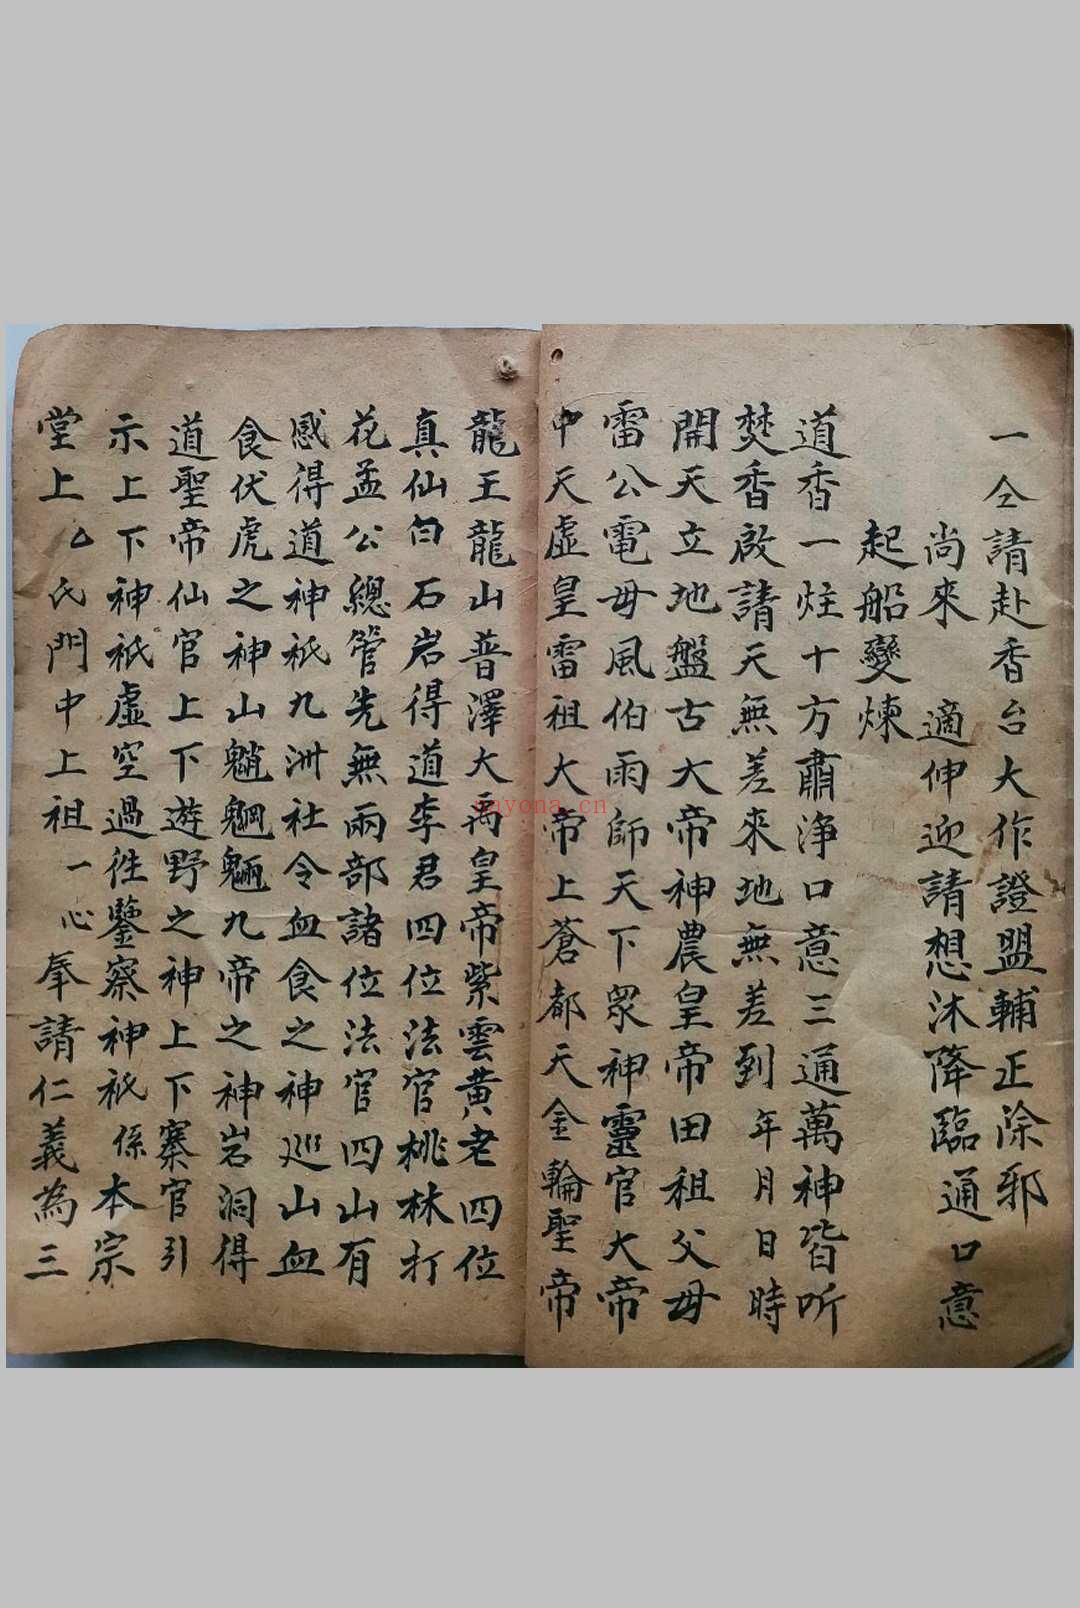 一仝請赴香台大作證盟輔正除邪
尚來 適伸迎請想沐降臨通口意
起船變煉
道香一炷十方肅净口意三通萬神皆听
焚香啟請天無差來地無差到年月日時
開天立地盤古大帝神農皇帝田祖父母
雷公電母風伯雨師天下眾神靈官大帝
中天虛皇雷祖大帝上蒼都天金輪聖帝
龍王龍山普澤大禹皇帝紫雲黃老四位
真仙白石岩得道李君四位法官桃林打
花孟公總管先無兩部諸位法官四山有
感得道神祇九洲社令血食之神巡山血
食伏虎之神山魈魍魎九帝之神岩洞得
道聖帝仙官上下遊野之神上下寨官引
示上下神祇虛空過往鑒察神祇係本宗
堂上厶氏門中上祖一心奉請仁義為三
nayona.cn